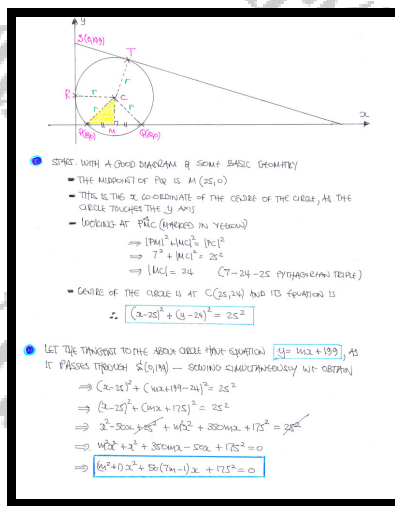 y
S(0,199)
T
r
R
r
C
r
r
x
P(18,0)
M
Q(32,0)
START WITH A GOOD DIAGRAM & SOME BASIC GEOMETRY
THE MIDPOINT OF PQ IS M(25,0)
THIS IS THE x COORDINATE OF THE CENTRE OF THE CIRCLE, AS THE
CIRCLE TOUCHES THE y AXIS
LOOKING AT PMC (MARKED IN YELLOW)
⇒ |PM|² + |MC|² = |PC|²
⇒ 7² + |MC|² = 25²
⇒ |MC| = 24 (7-24-25 PYTHAGOREAN TRIPLE)
CENTRE OF THE CIRCLE IS AT C(25,24) AND ITS EQUATION IS
∴ (x-25)² + (y-24)² = 25²
LET THE TANGENT TO THE ABOVE CIRCLE HAVE EQUATION y = mx + 199, AS
IT PASSES THROUGH S(0,199) — SOLVING SIMULTANEOUSLY WE OBTAIN
⇒ (x-25)² + (mx+199-24)² = 25²
⇒ (x-25)² + (mx+175)² = 25²
⇒ x² - 50x + 25² + m²x² + 350mx + 175² = 25²
⇒ m²x² + x² + 350mx - 50x + 175² = 0
⇒ (m²+1)x² + 50(7m-1)x + 175² = 0